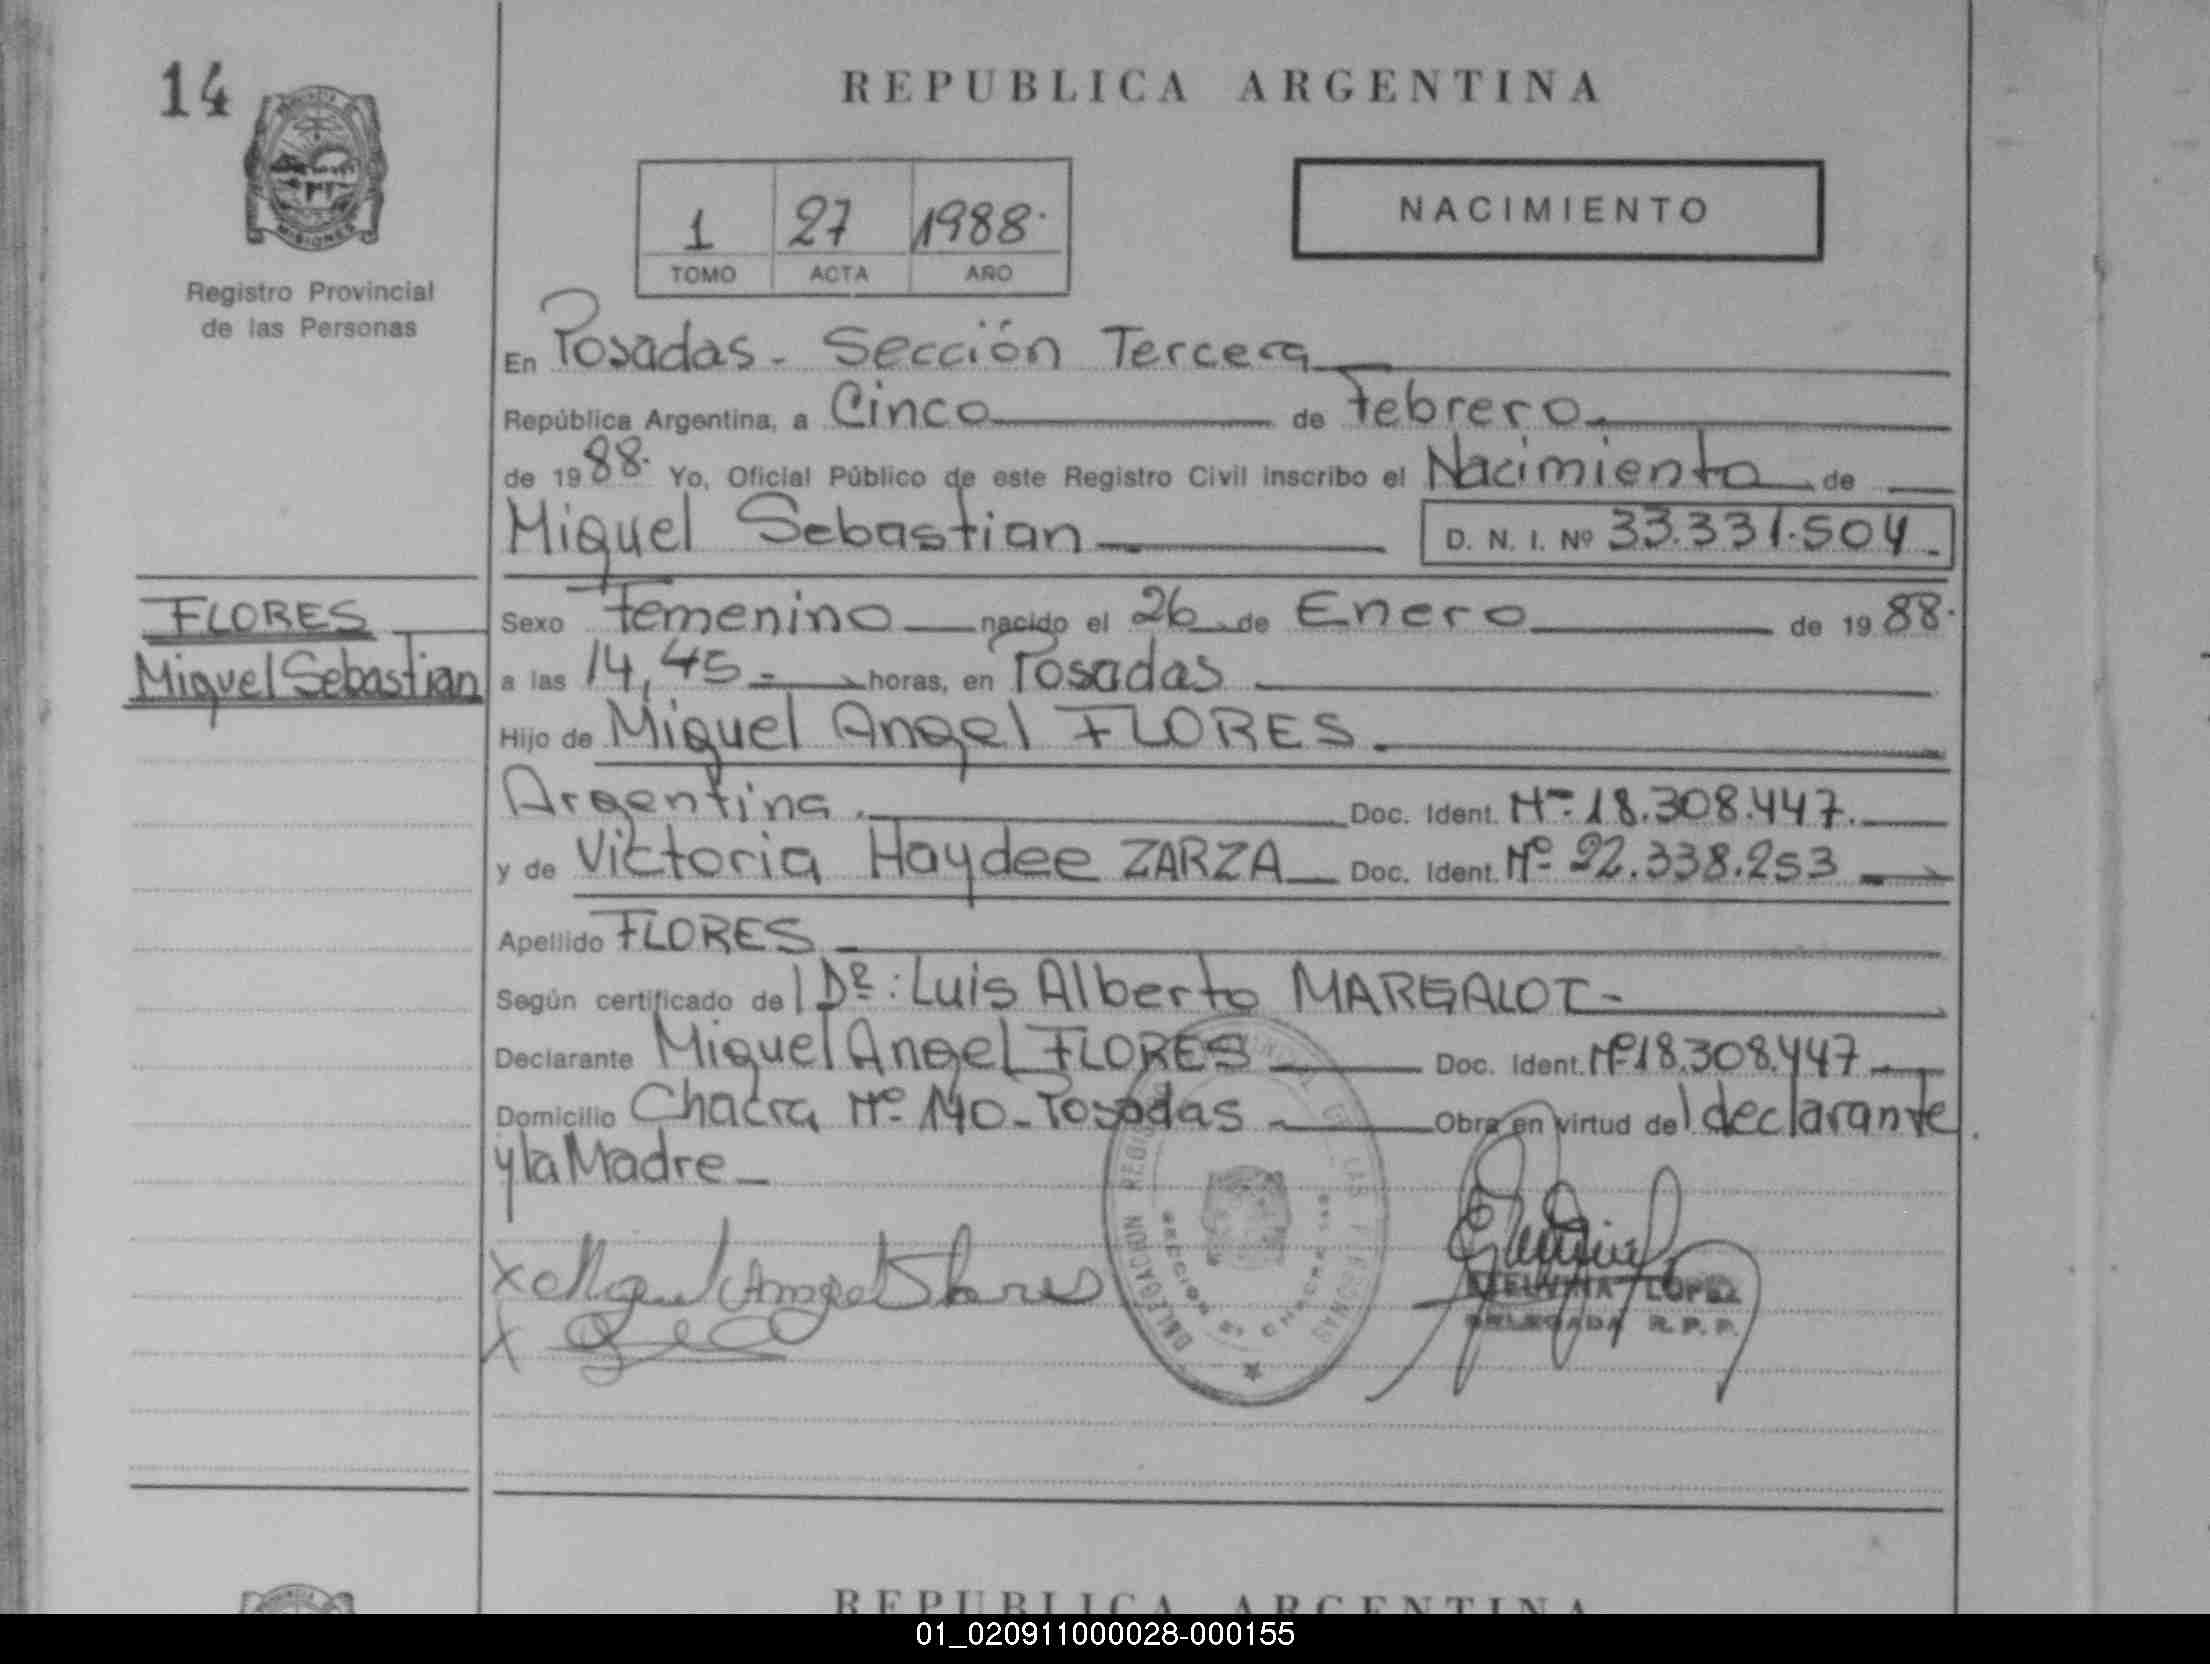 14
MISIONES
Registro Provincial
de las Personas
REPUBLICA ARGENTINA
1 27 1988.
TOMO ACTA AÑO
NACIMIENTO
En Posadas - Sección Tercera
República Argentina, a Cinco de Febrero.
de 1988. Yo, Oficial Público de este Registro Civil inscribo el Nacimiento de
Miguel Sebastian D. N. I. Nº 33.331.504
FLORES
Miguel Sebastian
Sexo Femenino nacido el 26 de Enero de 1988.
a las 14,45 horas, en Posadas
Hijo de Miguel Angel FLORES.
Argentina. Doc. Ident. Nº 18.308.447.
y de Victoria Haydee ZARZA Doc. Ident. Nº 22.338.253
Apellido FLORES
Según certificado del Dr: Luis Alberto MARGALOT-
Declarante Miguel Angel FLORES Doc. Ident. Nº 18.308.447
Domicilio Chacra Nº 140 - Posadas Obra en virtud del declarante
y la Madre
x Miguel Angel Flores
x
LOPEZ
DELEGADA R.P.P.
REPUBLICA ARGENTINA
01_020911000028-000155